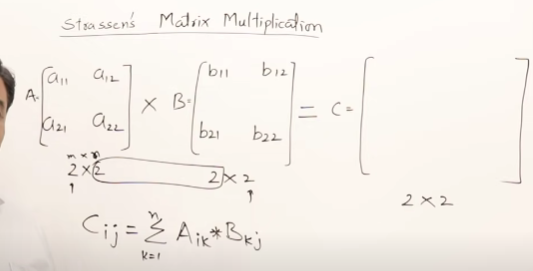 Strassen's Matrix Multiplication
a11 a12 b11 b12
A= × B= = C=
a21 a22 b21 b22
m×n
2×2 2×2 2×2
Cij = n∑k=1 Aik*Bkj